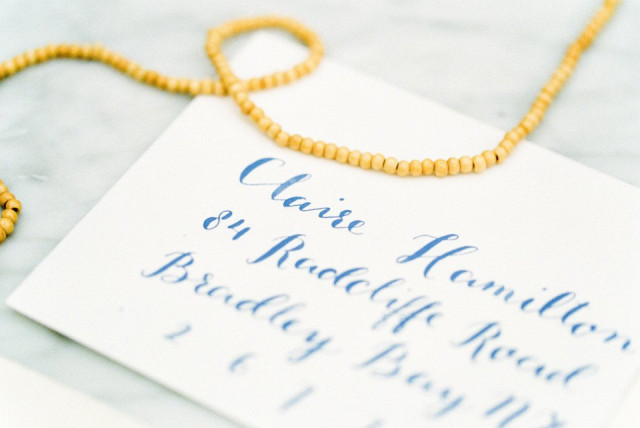 Claire Hamilton
84 Radcliffe Road
Bradley Bay
2 6 1